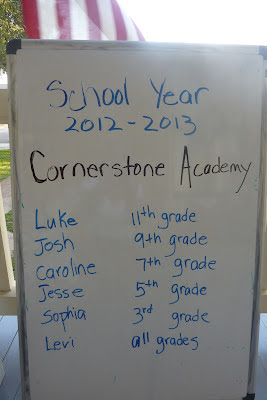 School Year
2012-2013
Cornerstone Academy
Luke 11th grade
Josh 9th grade
Caroline 7th grade
Jesse 5th grade
Sophia 3rd grade
Levi all grades